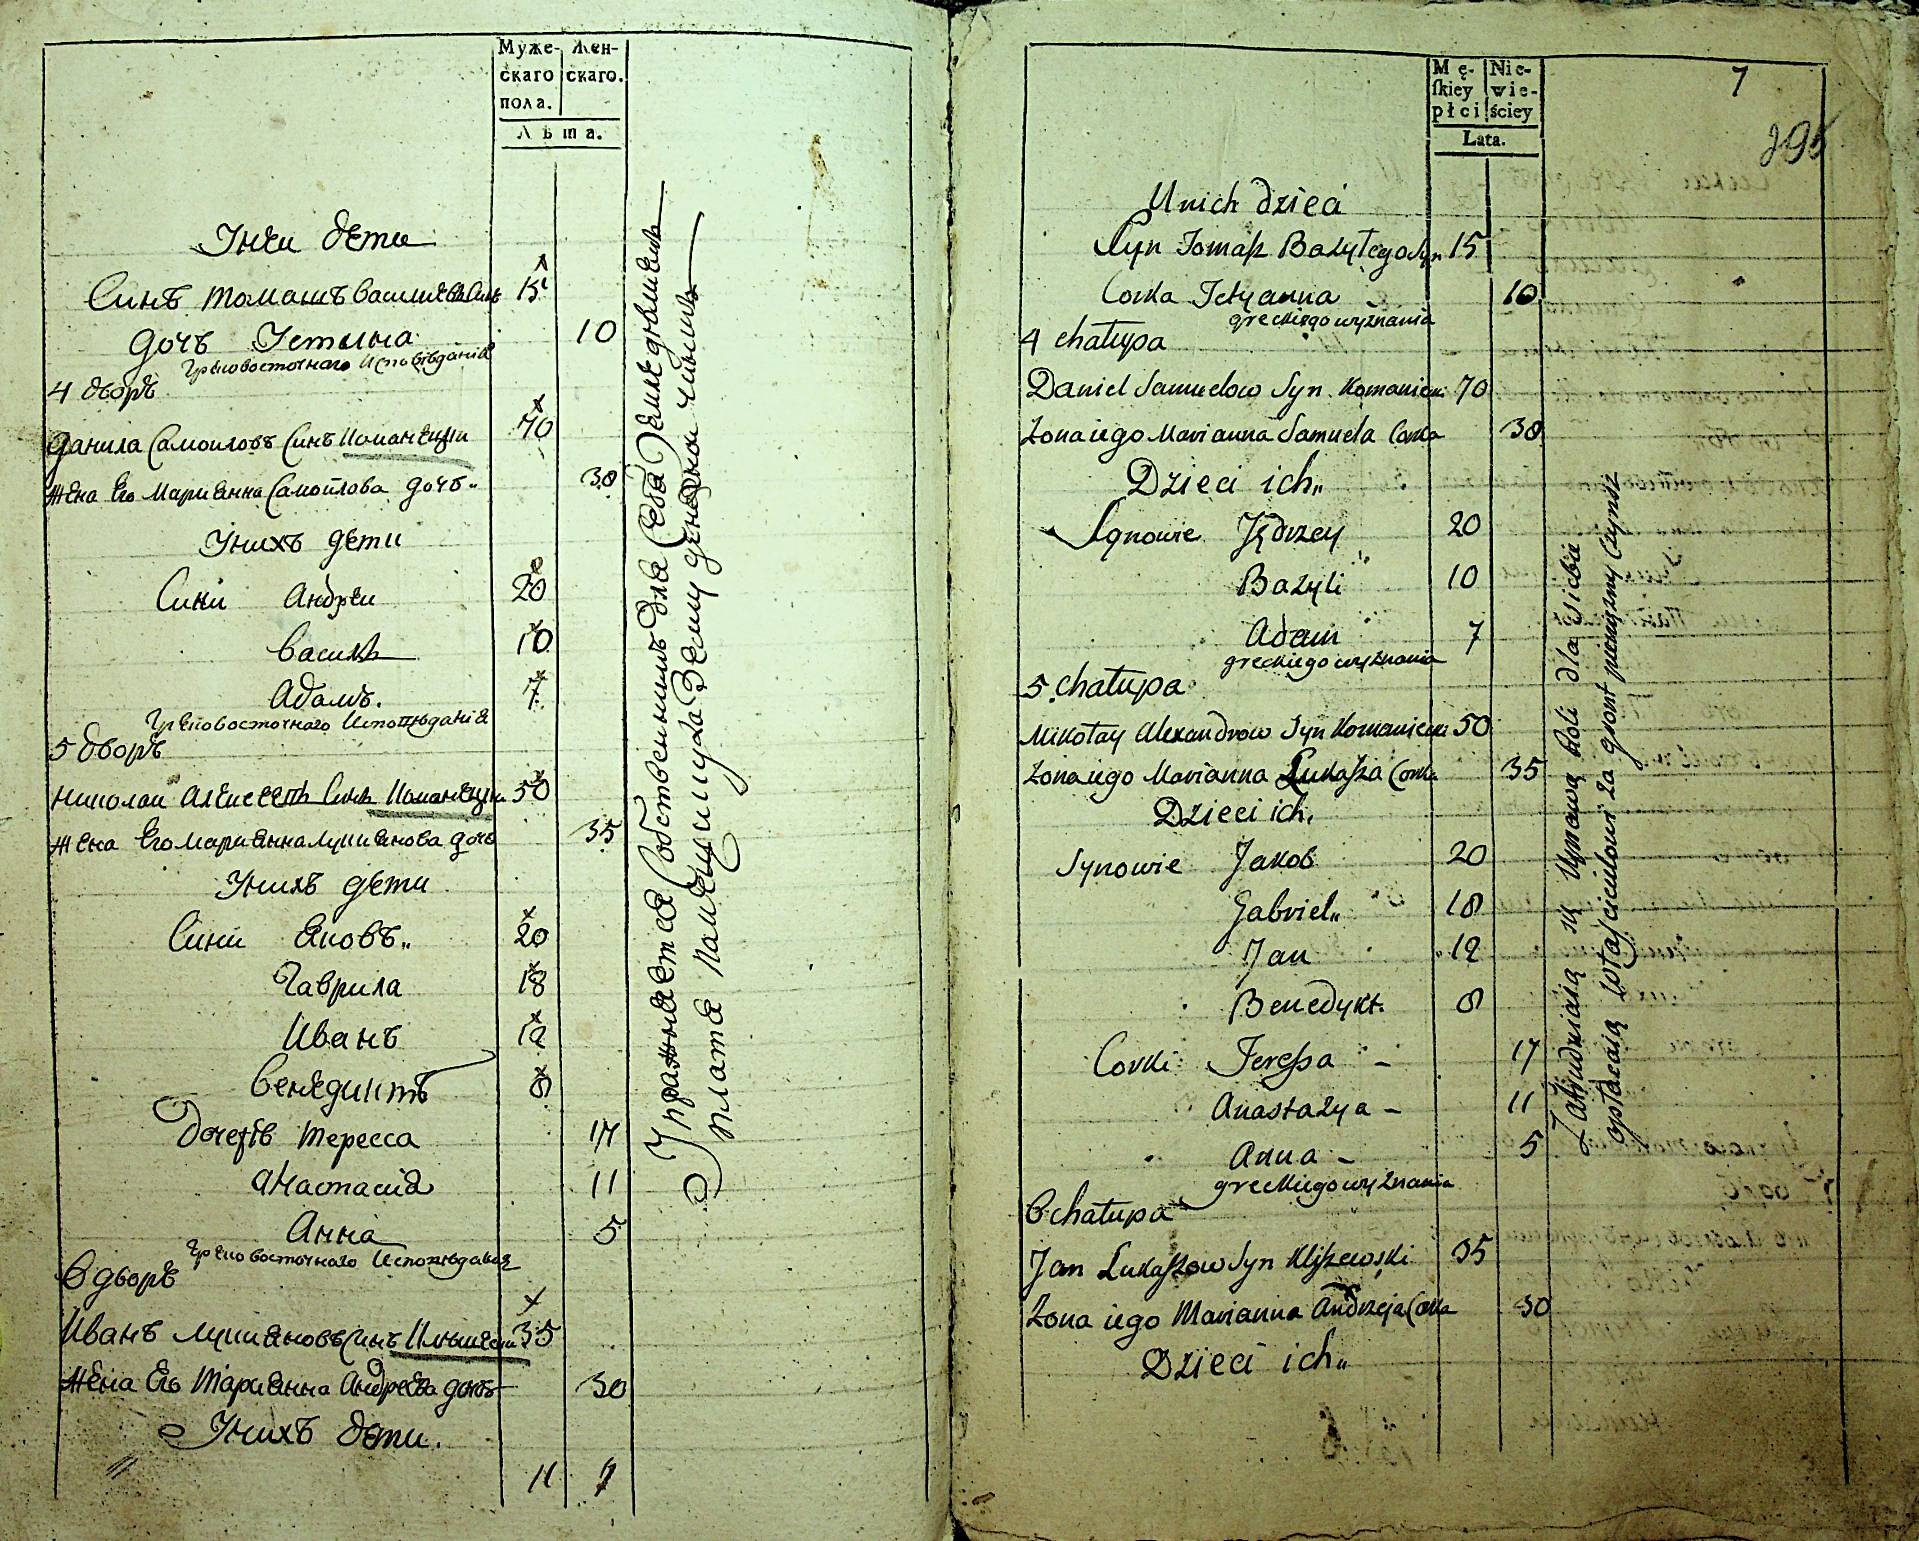 Муже- Жен-
скаго скаго.
пола.
Лѣта.
Унеи дети
Синъ томашъ василиевъ Синъ 15
дочъ Тетяна 10
Грековосточнаго Исповѣданія
4 дворъ
Данила Самоиловъ Синъ Команецки 70
жена Его Марианна Самоилова дочъ 38
Унихъ дети
Сини Андреи 20
василь 10
Адамъ. 7
Грековосточнаго Исповѣданія
5 дворъ
Николаи Алексеевъ Синъ Команецки 50
жена Его марианна лукианова дочъ 35
Унихъ дети
Сини яковъ„ 20
Гаврила 18
Иванъ 12
венедиктъ 8
Дочерѣ тересса 17
анастасия 11
Анна 5
Греко восточнаго Исповѣданія
6 дворъ
Иванъ лукияновъ Синъ Клышевски 35
жена Его Марианна Андреева дочъ 30
Унихъ дети.
11 7
Упражняется Собственнимъ для Себя Земледѣлиемъ
плата помещику за Землю денежнои чиншъ
Mę- Nie-
ſkiey wie-
płci ściey
Lata.
7
295
U nich dzieci
Syn Tomaſz Bazylego Syn 15
Corka Tetyanna 10
greckiego wyznania
4 chałupa
Daniel Samuelow Syn Komaniecki 70
Zona iego Marianna Samuela Corka 38
Dzieci ich„
Synowie Jędrzey 20
Bazyli 10
Adam 7
greckiego wyznania
5 chałupa
Mikołay Alexandrow Syn Komaniecki 50
Zona iego Marianna Łukaſza Corka 35
Dzieci ich.
Synowie Jakob 20
Gabriel„ 18
Jan 12
Benedykt. 8
Corki Tereſsa – 17
Anastazya – 11
Anna – 5
greckiego wyznania
6 chałupa
Jan Łukaſzow Syn Kliſzewski 35
Zona iego Marianna Andrzeja Corka 30
Dzieci ich„
Zatrudniaią się Uprawą Roli dla siebie
opłacaią Właſcicielowi za gront pieniężny Czynsz